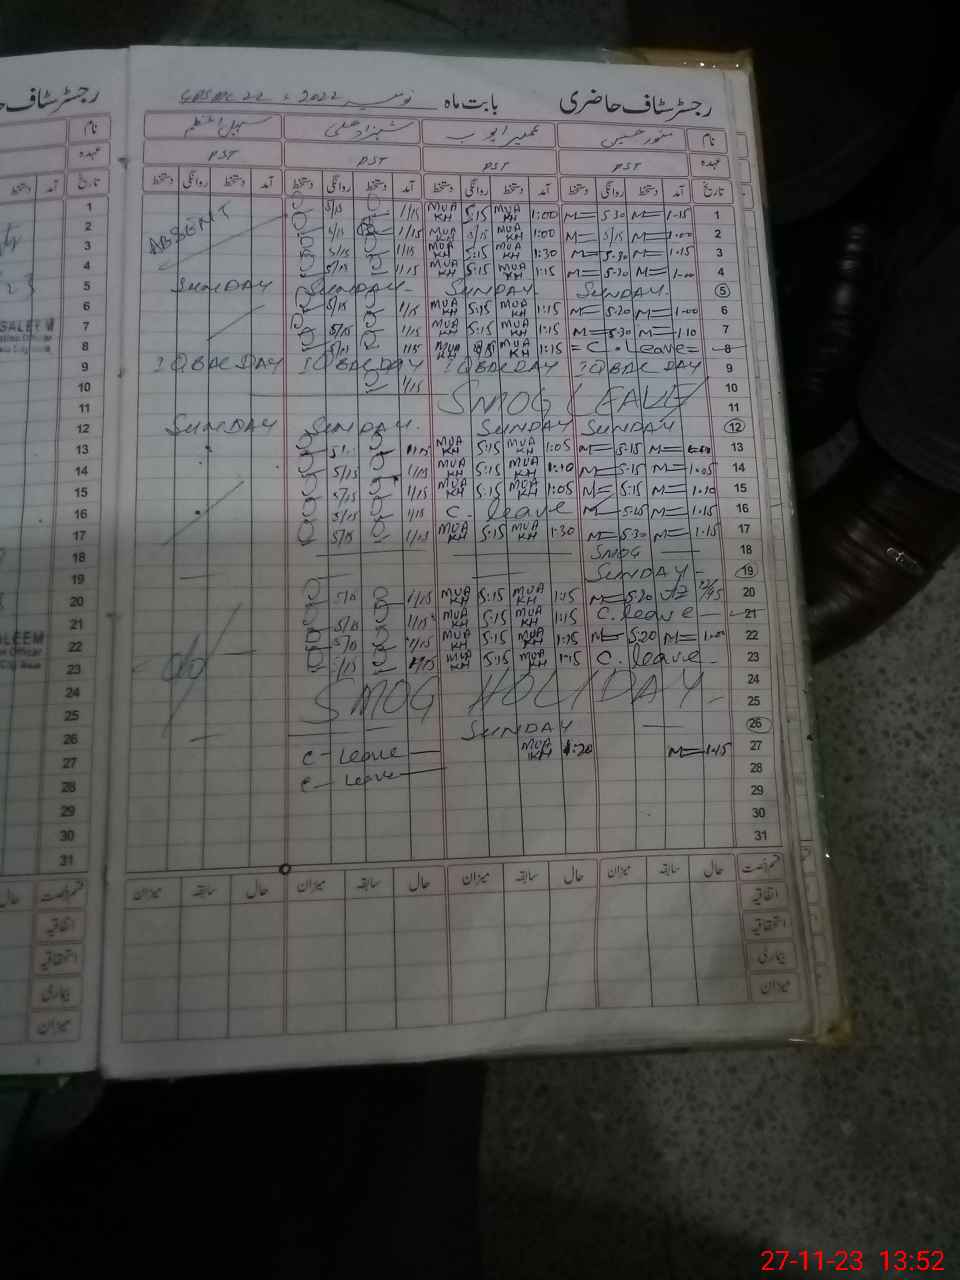 رجسٹر سٹاف حاضری بابت ماہ نومبر 2022
نام منور حسین عمیر ایوب شہزاد علی سہیل اعظم
عہدہ PST PST PST PST
تاریخ آمد دستخط روانگی دستخط آمد دستخط روانگی دستخط آمد دستخط روانگی دستخط آمد دستخط روانگی دستخط
ABSENT
1/15 5/15 1:00 MUA KH 5:15 MUA KH 1-15 M= 5:30 M= 1
1/15 5/15 1:00 MUA KH 5/15 MUA KH 1-00 M= 5/15 M= 2
1/15 5/15 1:30 MUA KH 5:15 MUA KH 1-15 M= 5-30 M= 3
1/15 5/15 1:15 MUA KH 5:15 MUA KH 1-00 M= 5-20 M= 4
SUNDAY SUNDAY SUNDAY SUNDAY 5
1/15 5/15 1:15 MUA KH 5:15 MUA KH 1-00 M= 5:20 M= 6
1/15 5/15 1:15 MUA KH 5:15 MUA KH 1-10 M= 5:30 M= 7
1:15 MUA KH C. Leave 8
IQBAL DAY IQBAL DAY IQBAL DAY IQBAL DAY 9
1/15 SMOG LEAVE 10
11
SUNDAY SUNDAY SUNDAY SUNDAY 12
1:05 MUA KH 5:15 MUA KH M= 5:15 M= 13
1/15 5/15 1:10 MUA KH 5:15 MUA KH 1-05 M= 5:15 M= 14
1/15 5/15 1:05 MUA KH 5:15 MUA KH 1-10 M= 5:15 M= 15
1/15 5/15 C. leave 1-15 M= 5:15 M= 16
1/15 5/15 1:30 MUA KH 5:15 MUA KH 1-15 M= 5:30 M= 17
SMOG 18
SUNDAY 19
1/15 5/15 1:15 MUA KH 5:15 MUA KH M= 5:20 20
1/15 5/15 1:15 MUA KH 5:15 MUA KH C. leave 21
do
1/15 5/15 1:15 MUA KH 5:15 MUA KH 1-00 M= 5:20 M= 22
1/15 5/15 1:15 MUA KH 5:15 MUA KH C. leave 23
SMOG HOLIDAY 24
25
SUNDAY 26
C-leave 1:20 MUA KH 1-15 M= 27
C-leave 28
29
30
31
قسم رخصت حال سابقہ میزان حال سابقہ میزان حال سابقہ میزان حال سابقہ میزان
اتفاقیہ
استحقاقیہ
بیماری
میزان
رجسٹر سٹاف
نام
عہدہ
تاریخ
1
2
3
4
5
6
7
8
9
10
11
12
13
14
15
16
17
18
19
20
21
22
23
24
25
26
27
28
29
30
31
SALEEM
Officer
قسم رخصت
حال
اتفاقیہ
استحقاقیہ
بیماری
میزان
27-11-23 13:52